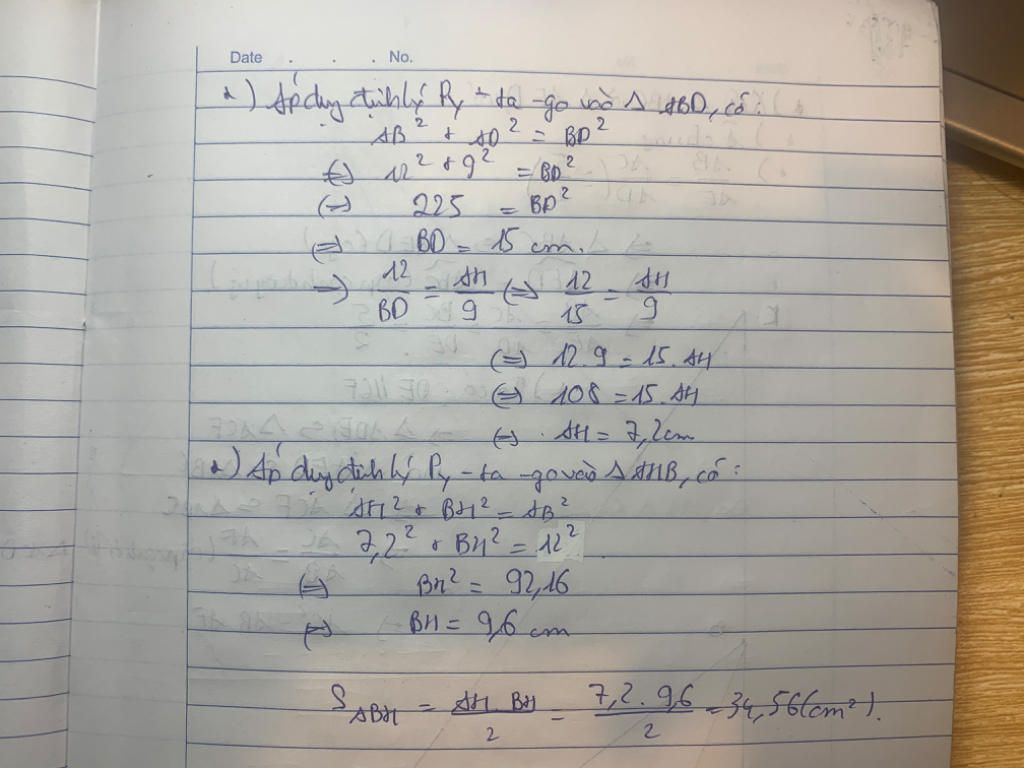 Date . . . No.
*) Áp dụng định lý Py - ta - go vào Δ ABD, có:
AB² + AD² = BD²
(=) 12² + 9² = BD²
(=) 225 = BD²
(=) BD = 15 cm.
=) 12/BD = AH/9 (=) 12/15 = AH/9
(=) 12.9 = 15.AH
(=) 108 = 15.AH
(=) AH = 7,2cm
*) Áp dụng định lý Py - ta - go vào Δ AHB, có:
AH² + BH² = AB²
7,2² + BH² = 12²
(=) BH² = 92,16
(=) BH = 9,6 cm
S ABH = AH.BH/2 = 7,2.9,6/2 = 34,56(cm²).